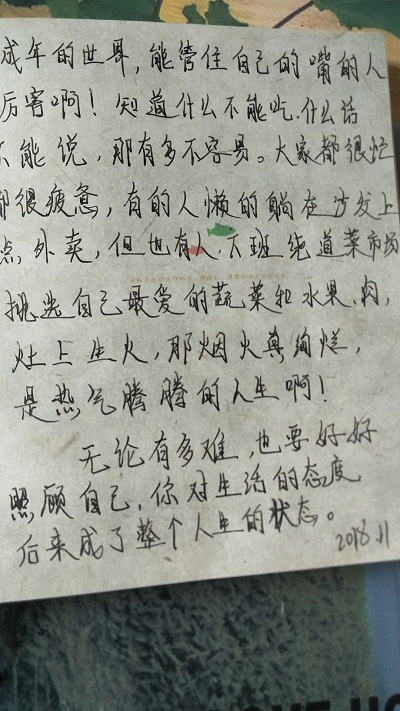 成年的世界,能管住自己的嘴的人
厉害啊!知道什么不能吃,什么话
不能说,那有多不容易。大家都很忙
都很疲惫,有的人懒的躺在沙发上
点外卖,但也有人下班绕道菜市场
挑选自己最爱的蔬菜和水果、肉,
灶上生火,那烟火真绚烂,
是热气腾腾的人生啊!
无论有多难,也要好好
照顾自己,你对生活的态度
后来成了整个人生的状态。
2018.11